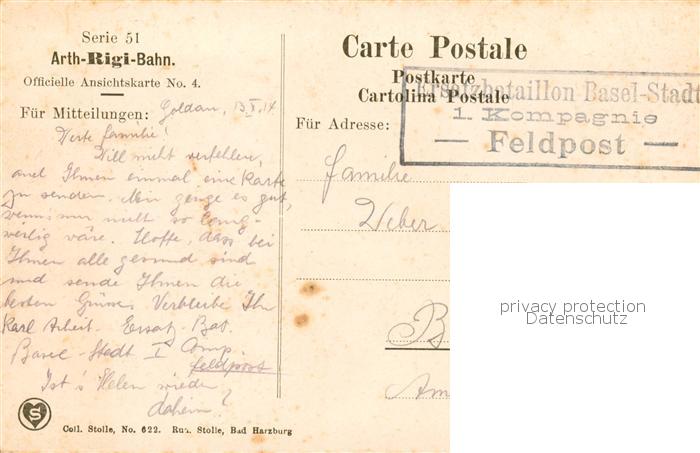 Serie 51
Arth-Rigi-Bahn.
Officielle Ansichtskarte No. 4.
Für Mitteilungen:
Goldau, 13.X.14
Werte Familie!
Will nicht verfehlen,
auch Ihnen einmal eine Karte
zu senden. Mir genge es gut,
wenn's nur nicht so lang-
weilig wäre. Hoffe, dass bei
Ihnen alle gesund sind
und sende Ihnen die
besten Grüsse Verbleibe Ihr
Karl Arbeit. Ersatz-Bat.
Basel-Stadt I Comp.
Feldpost
Ist's Helen wieder
daheim?
S
Coll. Stolle, No. 622. Stolle, Bad Harzburg
Carte Postale
Postkarte
Cartolina Postale
Für Adresse:
Ersatzbataillon Basel-Stadt
1. Kompagnie
— Feldpost —
Familie
Weber
B
Am
privacy protection
Datenschutz